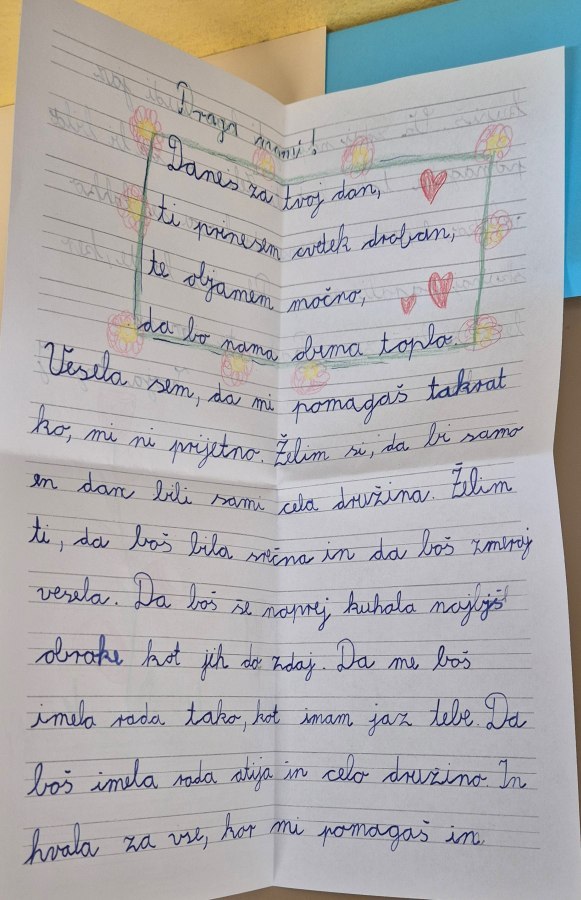 Draga mami!
Danes za tvoj dan,
ti prinesem cvetek droban,
te objamem močno,
da bo nama obima toplo.
Vesela sem, da mi pomagaš takrat
ko, mi ni prijetno. Želim si, da bi samo
en dan bili sami cela družina. Želim
ti, da boš bila srečna in da boš zmeraj
vesela. Da boš še naprej kuhala najbjš
obroke kot jih do zdaj. Da me boš
imela rada tako, kot imam jaz tebe. Da
boš imela rada atija in celo družino. In
hvala za vse, kar mi pomagaš in